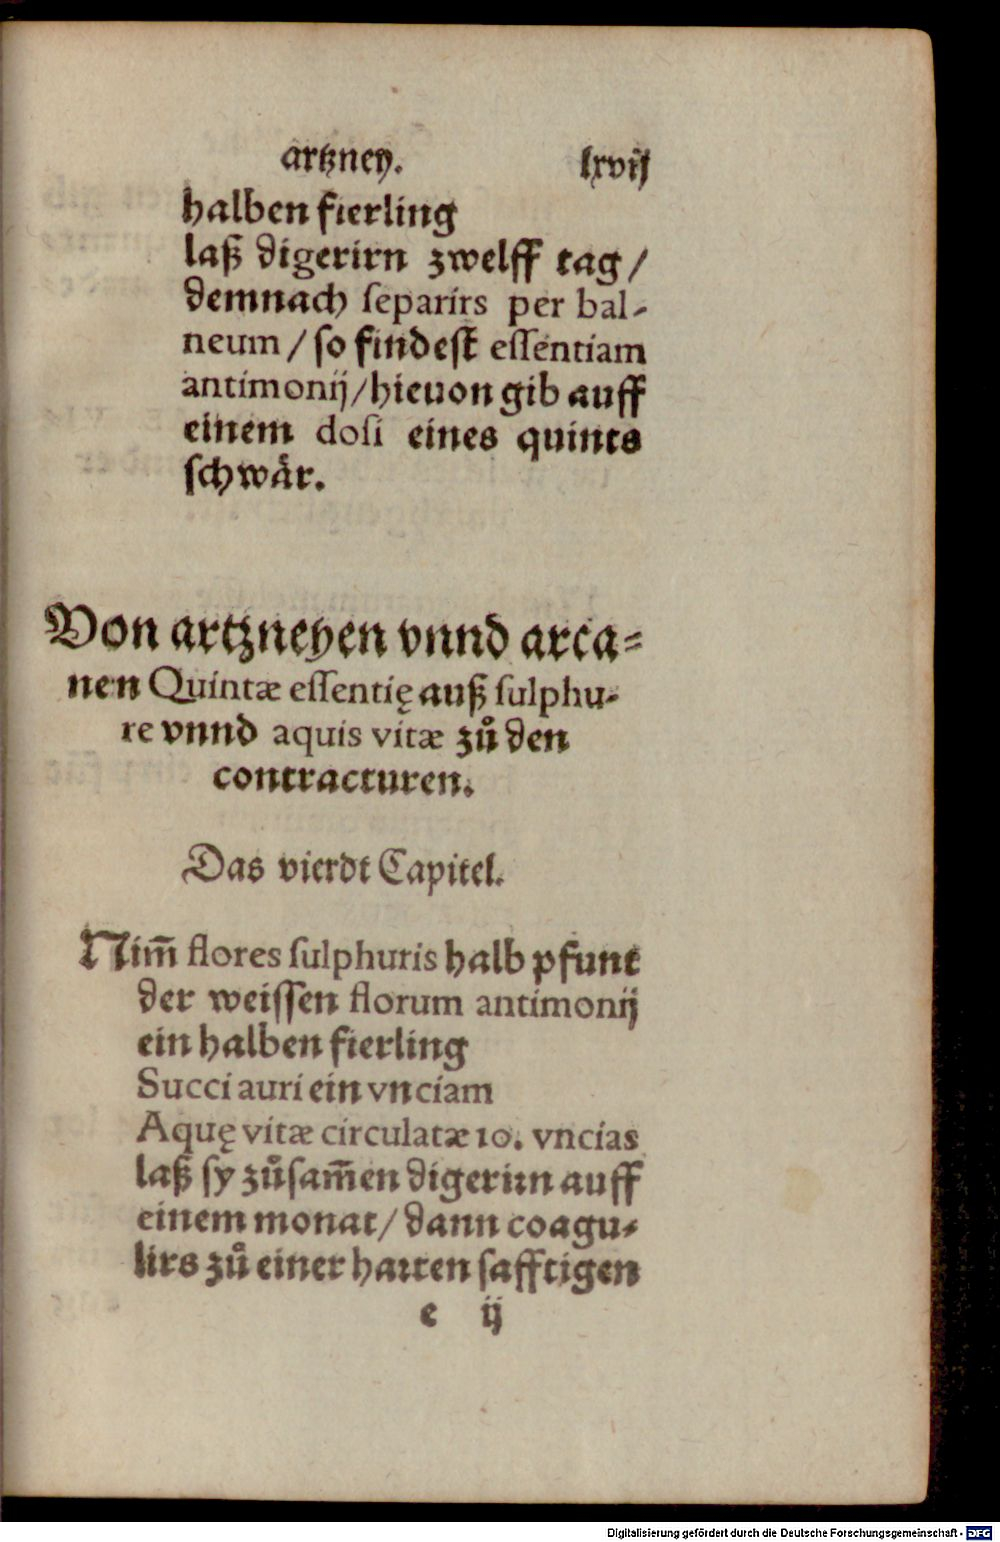 artzney. lxvij
halben fierling
laß digerirn zwelff tag /
demnach ſeparirs per bal-
neum / ſo findeſt eſſentiam
antimonij / hieuon gib auff
einem doſi eines quints
ſchwaͤr.
Von artzneyen vnnd arca-
nen Quintæ eſſentię auß ſulphu-
re vnnd aquis vitæ zuͦ den
contracturen.
Das vierdt Capitel.
Nim̄ flores ſulphuris halb pfunt
der weiſſen florum antimonij
ein halben fierling
Succi auri ein vnciam
Aquę vitæ circulatæ 10. vncias
laß ſy zuͦſam̄en digerirn auff
einem monat / dann coagu-
lirs zuͦ einer harten ſafftigen
e ij
Digitalisierung gefördert durch die Deutsche Forschungsgemeinschaft - DFG